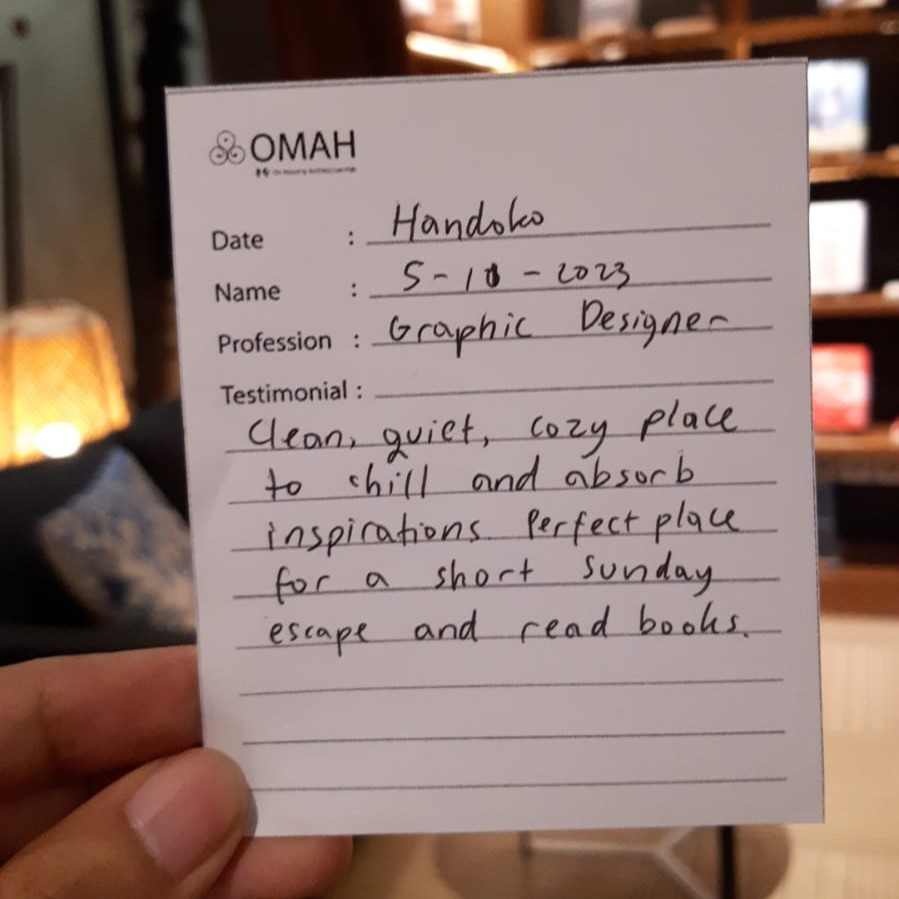 OMAH
Date : Handoko
Name : 5-10-2023
Profession : Graphic Designer
Testimonial :
Clean, quiet, cozy place
to chill and absorb
inspirations. Perfect place
for a short sunday
escape and read books.